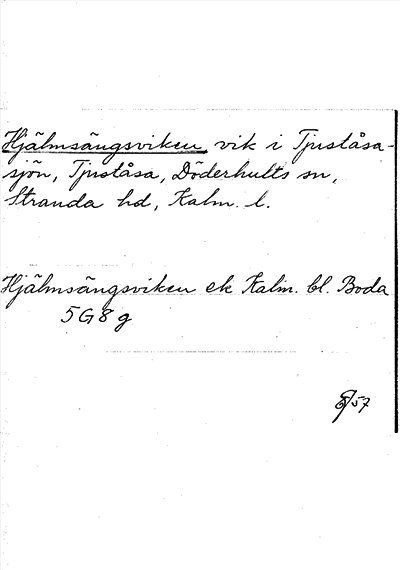 Hjälmsängsviken, vik i Tjuståsa-
sjön, Tjuståsa, Döderhults sn,
Stranda hd, Kalm. l.
Hjälmsängsviken ek Kalm. bl. Boda
5G8g
57